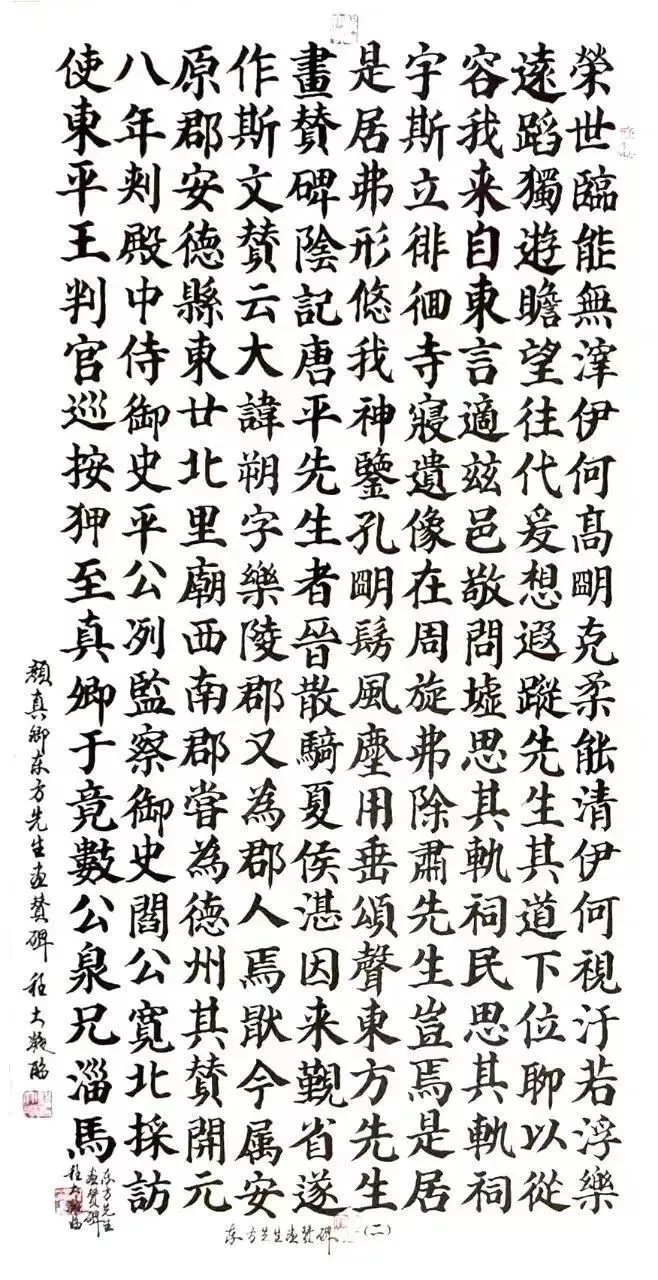 榮世臨能無滓伊何高明克柔能清伊何視汙若浮樂
遠蹈獨遊瞻望往代爰想遐蹤先生其道下位聊以從
容我来自東言適茲邑敬問墟思其軌祠民思其軌祠
宇斯立徘徊寺寢遺像在周旋弗除肅先生豈焉是居
是居弗形悠我神鑒孔明髣風塵用垂頌聲東方先生
畫贊碑陰記唐平先生者晉散騎夏侯湛因来覲省遂
作斯文贊云大諱朔字樂陵郡又為郡人焉猒今属安
原郡安德縣東廿北里廟西南郡嘗為德州其贊開元
八年刾殿中侍御史平公冽監察御史閻公寬北採訪
使東平王判官巡按狎至真卿于竟數公泉兄淄馬
顏真卿東方先生画贊碑 程大凝臨
东方先生
画贊碑
程大凝臨
东方先生画贊碑(二)